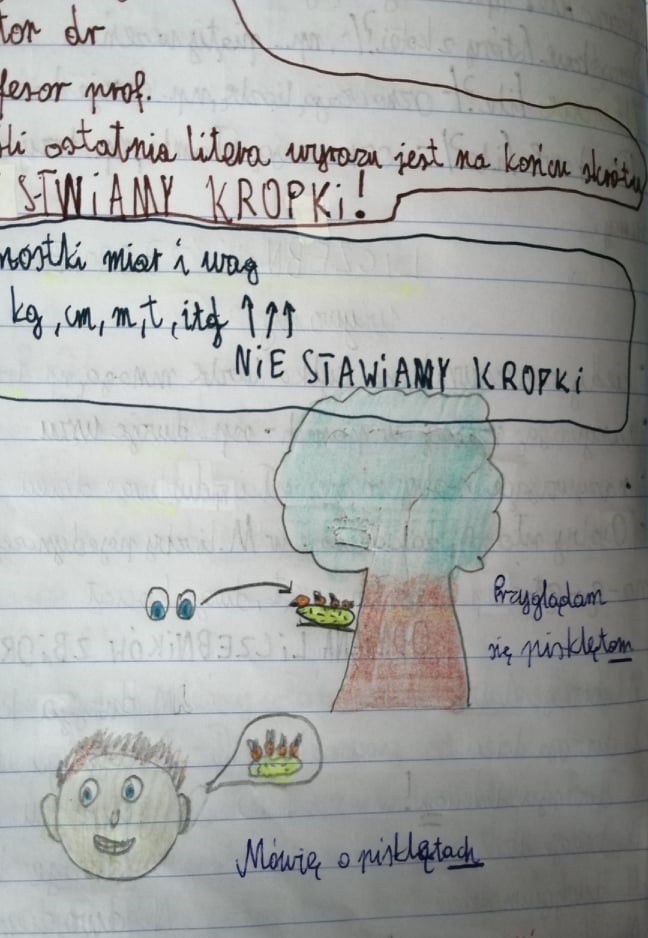 tor dr
fesor prof.
śli ostatnia litera wyrazu jest na końcu skrótu
STWiAMY KROPKi!
nostki miar i wag
kg, cm, m, t, itd ↑↑↑
NiE STAWiAMY KROPKi
Przyglądam
się pisklętom
Mówię o pisklętach